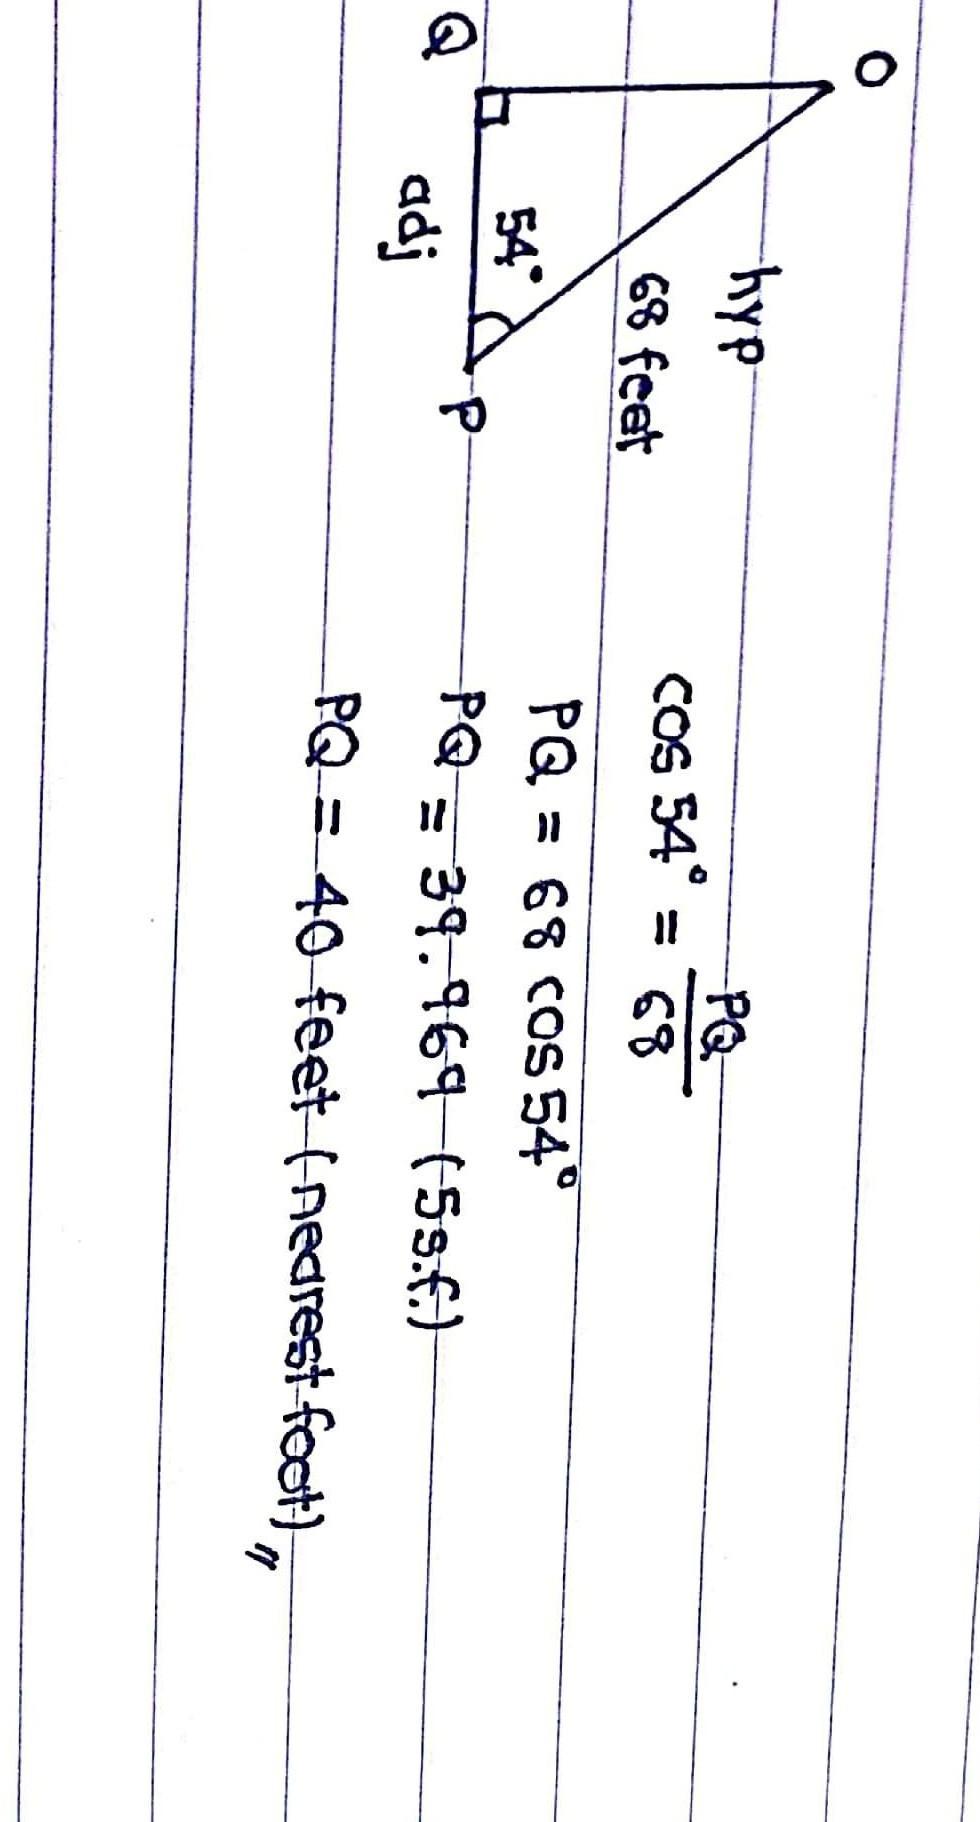 O
hyp
68 feet
54°
Q
P
adj
cos 54° = PQ/68
PQ = 68 cos 54°
PQ = 39.969 (5s.f.)
PQ = 40 feet (nearest foot)〃